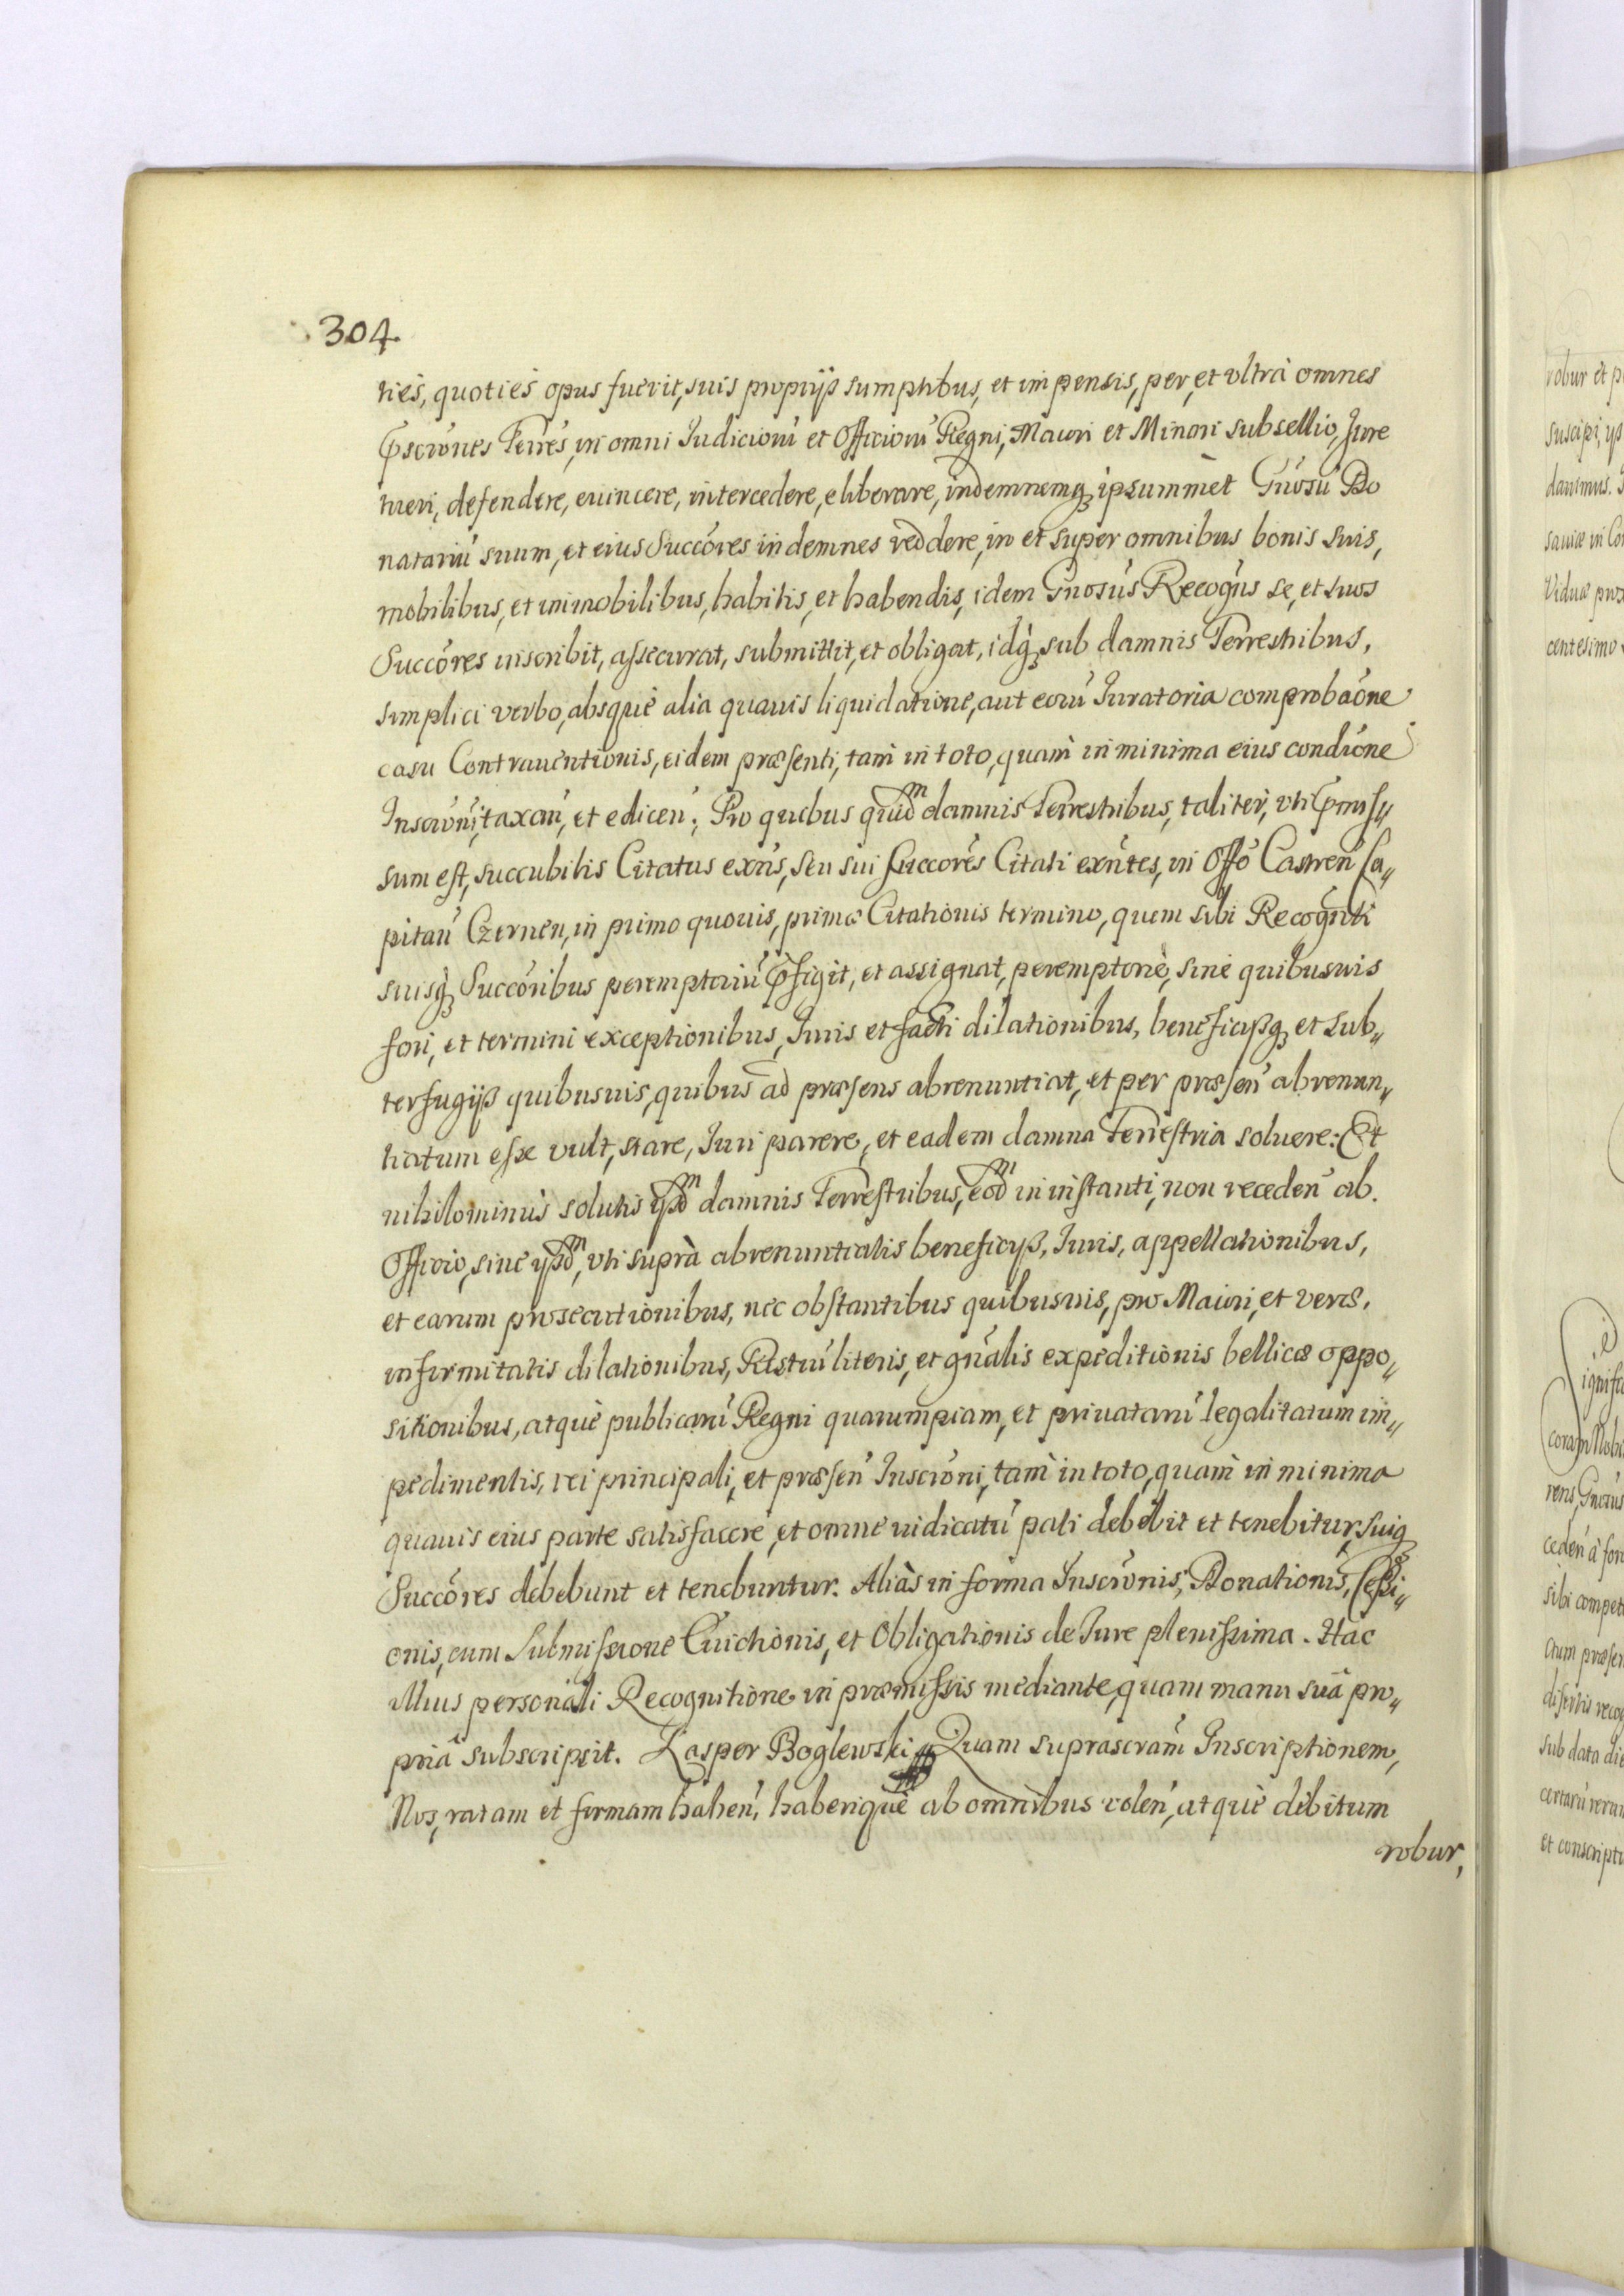 304.
ties, quoties opus fuerit, suis proprijs sumptibus, et impensis, per, et vltrà omnes
Pscrōnes Terrēs, in omni Iudiciorū et Officiorū Regni, Maiori et Minori subsellio, Iure
tueri, defendere, euincere, intercedere, eliberare, indemnemq ipsummet Gn̄osū Do
natariū suum, et eius Succōres indemnes reddere, in et super omnibus bonis suis,
mobilibus, et immobilibus, habitis, et habendis, idem Gn̄osus Recogn̄s se, et suos
Succōres inscribit, assecurat, submittit, et obligat, idq sub damnis Terrestribus,
simplici verbo, absque alia quauis liquidatione, aut eorū Iuratoria comprobaōne
casu Contrauentionis, eidem præsenti, tam in toto, quam in minima eius condiōne
Inscrōni, taxan̄, et edicen̄; Pro quibus quidm damnis Terrestribus, taliter, vti Pmis„
sum est, succubitis Citatus exn̄s, seu sui Succōres Citati exn̄tes, in Offō Castren̄ Ca„
pitan̄ Czernen, in primo quouis, primæ Citationis termino, quem sibi Recogn̄ti
suisq Succōribus peremptoriū Pfigit, et assignat, peremptoriè, sine quibusuis
fori, et termini exceptionibus, Iuris et facti dilationibus, beneficijsq et sub„
terfugijs quibusuis, quibus ad præsens abrenuntiat, et per præsen̄ abrenun„
tiatum esse vult, stare, Iuri parere, et eadem damna Terrestria soluere: Et
nihilominus solutis ijsdm damnis Terrestribus, eodm in instanti, non receden̄ ab
Officio, sine ijsdm, vti suprà abrenuntiatis beneficijs, Iuris, appellationibus,
et earum prosecutionibus, nec obstantibus quibusuis, pro Maiori, et veræ,
infirmitatis dilationibus, Restū literis, et gn̄alis expeditionis bellicæ oppo„
sitionibus, atque publicarū Regni quarumpiam, et priuatarū legalitatum im„
pedimentis, rei principali, et præsen̄ Inscrōni, tam in toto, quam in minima
quauis eius parte satisfacere, et omne iudicatū pati debebit et tenebitur, suiq
Succōres debebunt et tenebuntur. Aliàs in forma Inscrōnis, Donationis, Cessi„
onis, cum Submissione Euictionis, et Obligationis de Iure plenissima. Hac
illius personali Recognitione in præmissis mediante, quam manu suâ pro„
priâ subscripsit. Kasper Boglewski Quam suprascrām Inscriptionem,
Nos, ratam et firmam haben̄, haberique ab omnibus volen̄, atque debitum
robur,